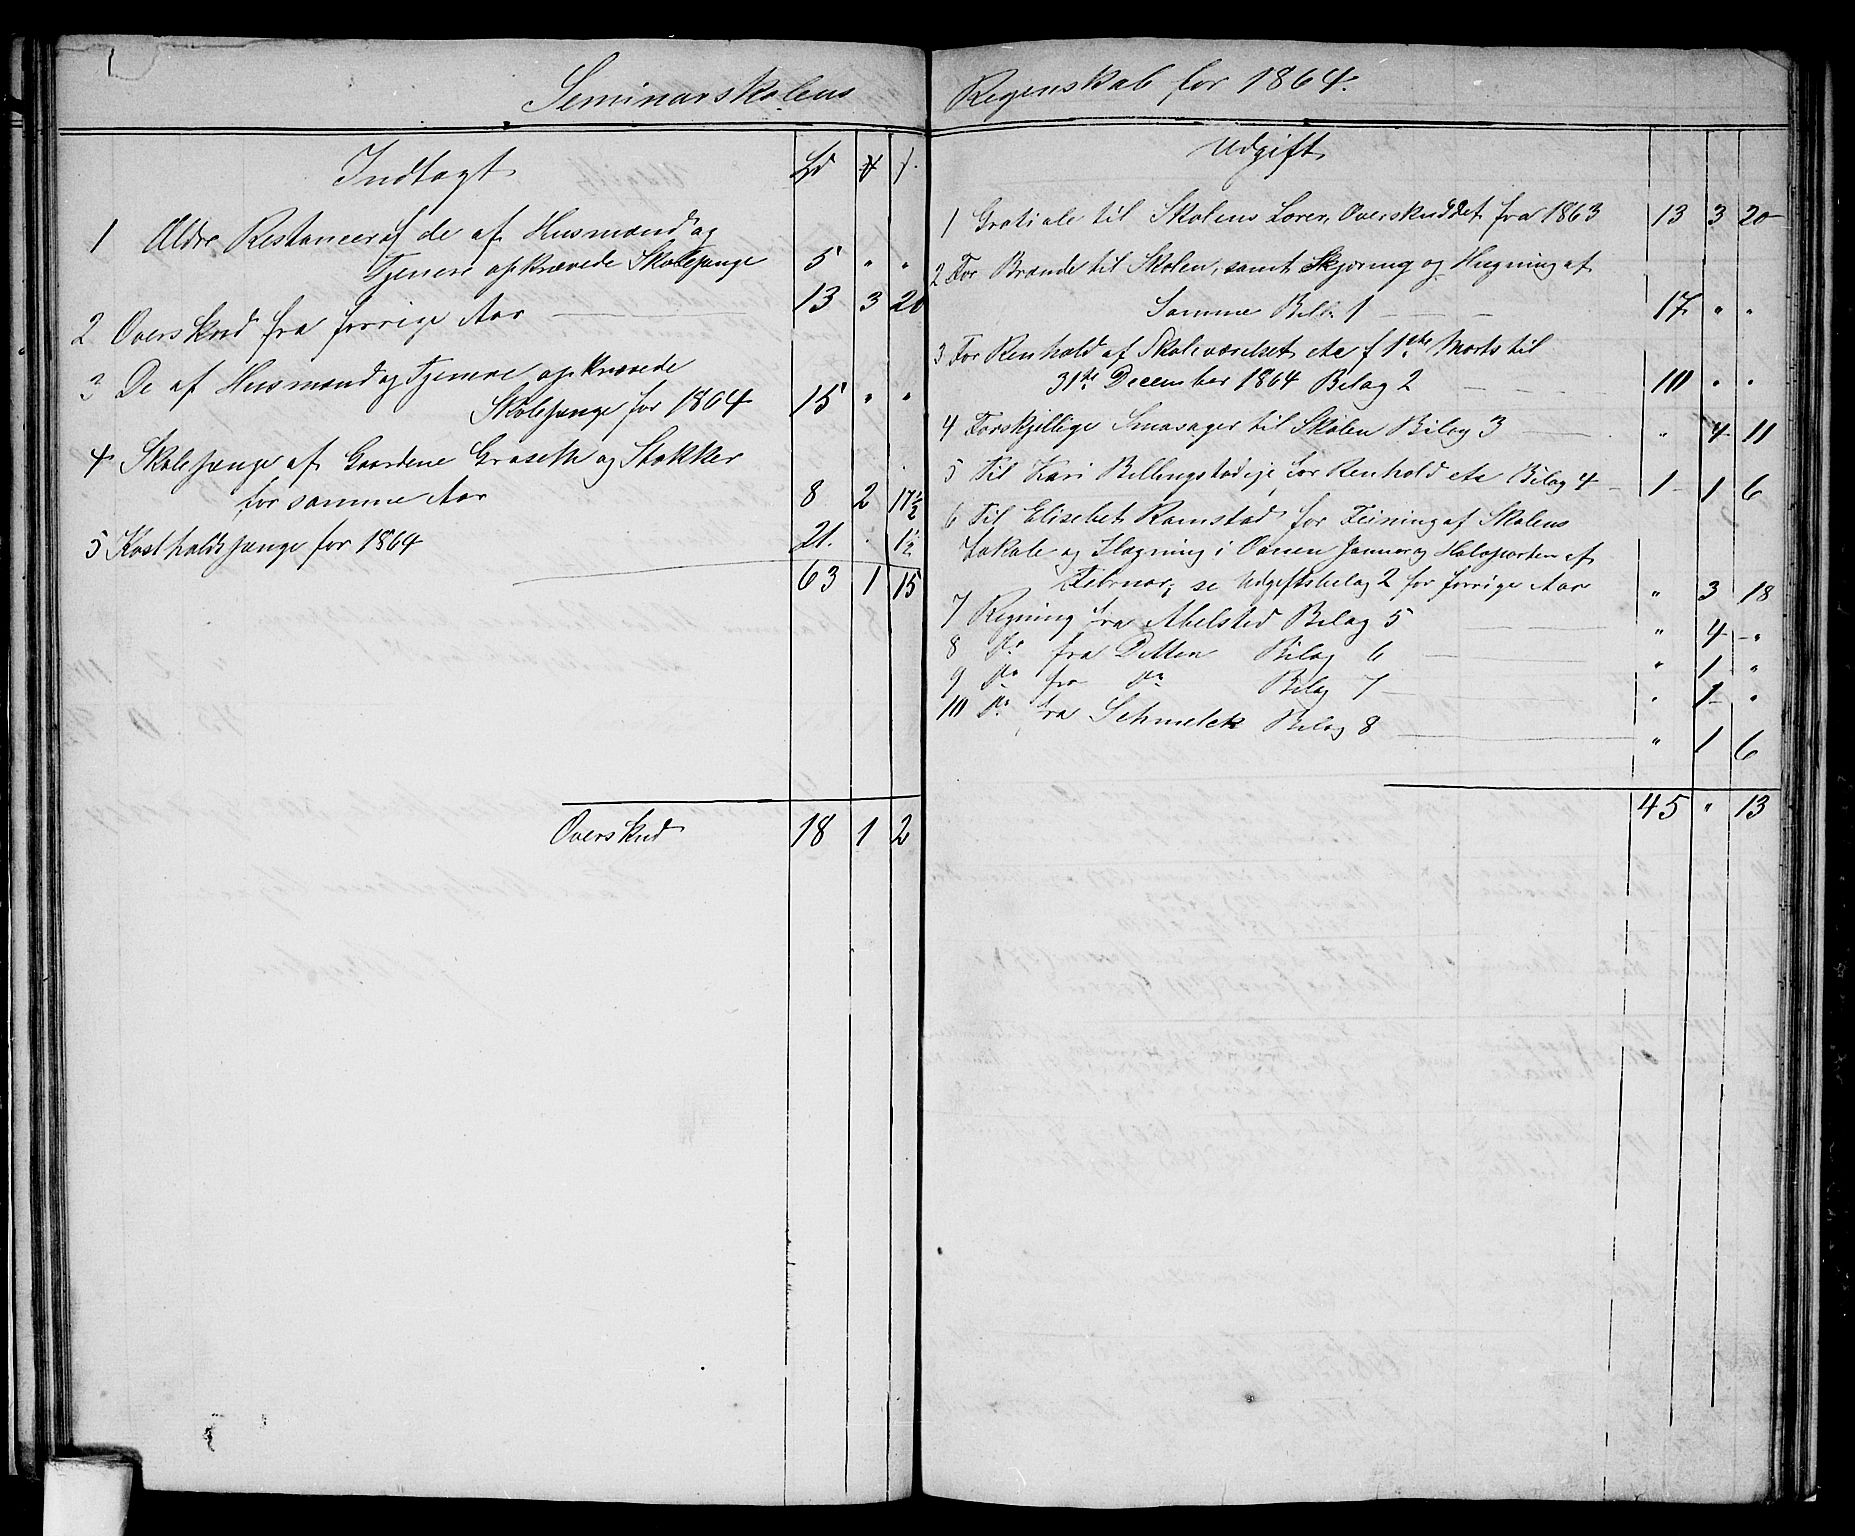 Seminarskolens
Indtægt Spd ₰ ſ.
1 Ældre Restancer af de af Husmænd og
Tjenere opkrævede Skolepænge 5 " "
2 Overskud fra forrige Aar 13 3 20
3 De af Husmænd og Tjenere opkrævede
Skolepænge for 1864 15 " "
4 Skolepænge af Gaardene Graseth og Stokker
for samme Aar 8 2 17½
5 Kostholdspænge for 1864 21. . 1½
63 1 15
Overskud 18 1 2
Regenskab for 1864.
Udgift
1 Gratiale til Skolens Lærer, Overskuddet fra 1863 13 3 20
2 For Brænde til Skolen, samt Skjæring og Hugning af
Samme Bil. 1 17 " "
3 For Renhold af Skoleværelset etc f 1ste Marts til
31te December 1864 Bilag 2 10 " "
4 Forskjellige Smaasager til Skolen Bilag 3 " 4 11
5 Til Kari Billingstadeje for Renhold etc Bilag 4 1 1 6
6 Til Elisebet Ramstad for Feining af Skolens
Lokale og Ilægning i Ovnen Januar og Halvparten af
Februar, se Udgiftsbilag 2 for forrige Aar " 3 18
7 Regning fra Abelsted Bilag 5 " 4 "
8 Do fra Ditten Bilag 6 " 1 "
9 Do fra Do Bilag 7 " 1 "
10 Do fra Schmelck Bilag 8 " 1 6
45 " 13